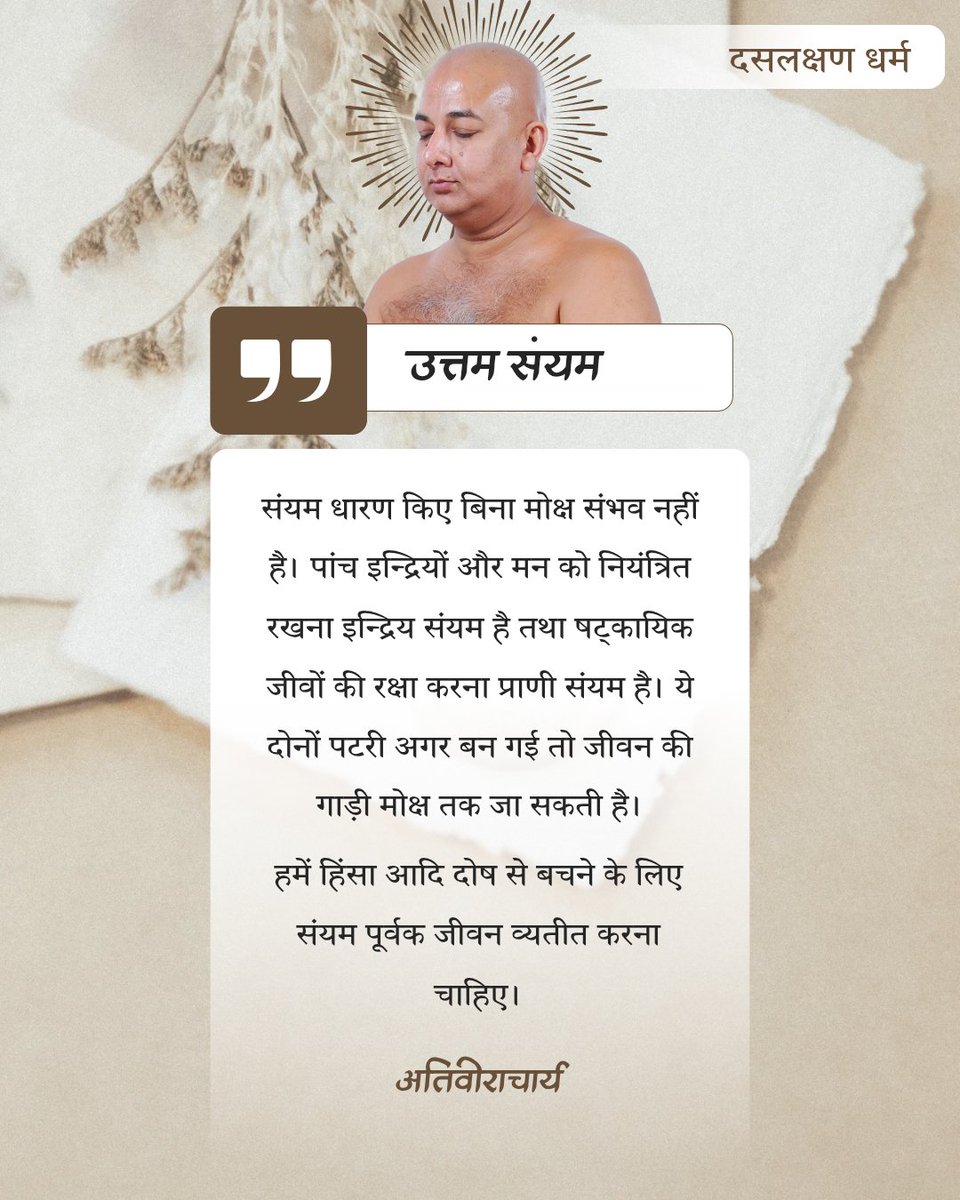 दसलक्षण धर्म
उत्तम संयम
संयम धारण किए बिना मोक्ष संभव नहीं
है। पांच इन्द्रियों और मन को नियंत्रित
रखना इन्द्रिय संयम है तथा षट्कायिक
जीवों की रक्षा करना प्राणी संयम है। ये
दोनों पटरी अगर बन गई तो जीवन की
गाड़ी मोक्ष तक जा सकती है।
हमें हिंसा आदि दोष से बचने के लिए
संयम पूर्वक जीवन व्यतीत करना
चाहिए।
अतिवीराचार्य